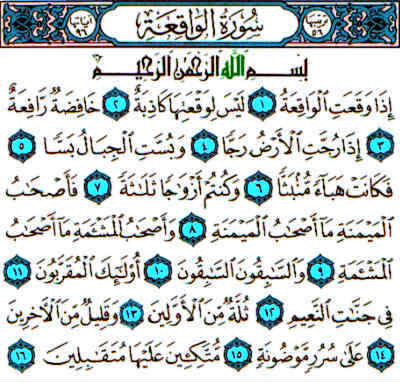 ترتيبها ٥٦ سُورَةُ الوَاقِعَةِ آياتها ٩٦
بِسْمِ ٱللَّهِ ٱلرَّحْمَٰنِ ٱلرَّحِيمِ
إِذَا وَقَعَتِ ٱلْوَاقِعَةُ ١ لَيْسَ لِوَقْعَتِهَا كَاذِبَةٌ ٢ خَافِضَةٌ رَّافِعَةٌ
٣ إِذَا رُجَّتِ ٱلْأَرْضُ رَجًّا ٤ وَبُسَّتِ ٱلْجِبَالُ بَسًّا ٥
فَكَانَتْ هَبَآءً مُّنۢبَثًّا ٦ وَكُنتُمْ أَزْوَٰجًا ثَلَٰثَةً ٧ فَأَصْحَٰبُ
ٱلْمَيْمَنَةِ مَآ أَصْحَٰبُ ٱلْمَيْمَنَةِ ٨ وَأَصْحَٰبُ ٱلْمَشْـَٔمَةِ مَآ أَصْحَٰبُ
ٱلْمَشْـَٔمَةِ ٩ وَٱلسَّٰبِقُونَ ٱلسَّٰبِقُونَ ١٠ أُو۟لَٰٓئِكَ ٱلْمُقَرَّبُونَ ١١
فِى جَنَّٰتِ ٱلنَّعِيمِ ١٢ ثُلَّةٌ مِّنَ ٱلْأَوَّلِينَ ١٣ وَقَلِيلٌ مِّنَ ٱلْـَٔاخِرِينَ
١٤ عَلَىٰ سُرُرٍ مَّوْضُونَةٍ ١٥ مُّتَّكِـِٔينَ عَلَيْهَا مُتَقَٰبِلِينَ ١٦